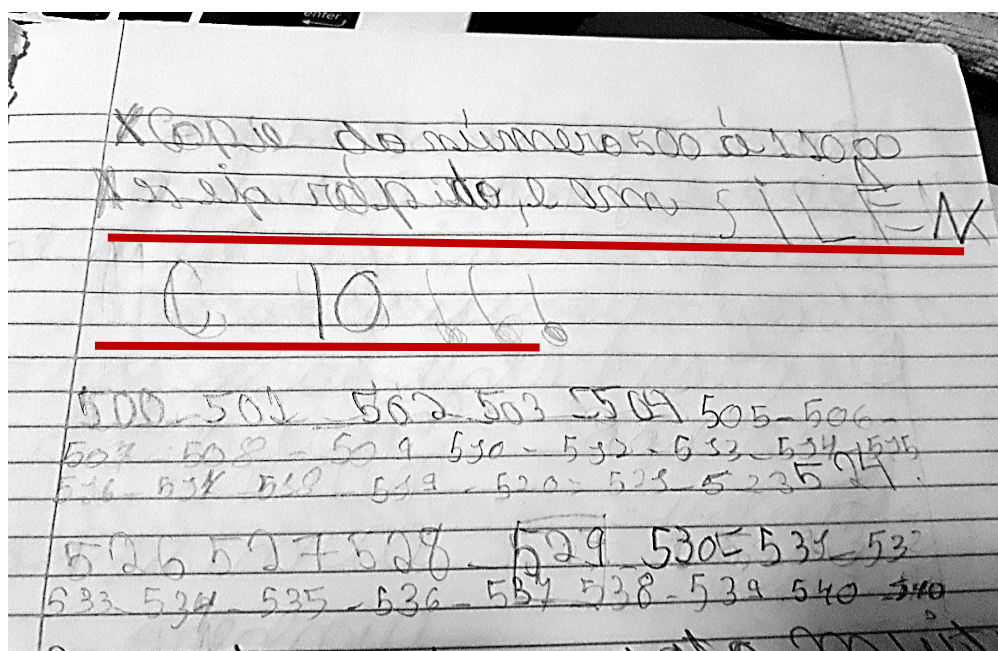 enter
Copie do número 500 à 11000
seja rápido, e em SILÊN
CIO !!!
500 - 501 - 502 - 503 - 504 505 - 506 -
507 - 508 - 509 510 - 512 - 513 - 514 - 515
516 - 517 518 - 519 - 520 - 521 - 523 524.
526 527 528 - 529 - 530 - 531 - 53
533 - 534 - 535 - 536 - 537 - 538 - 539 540